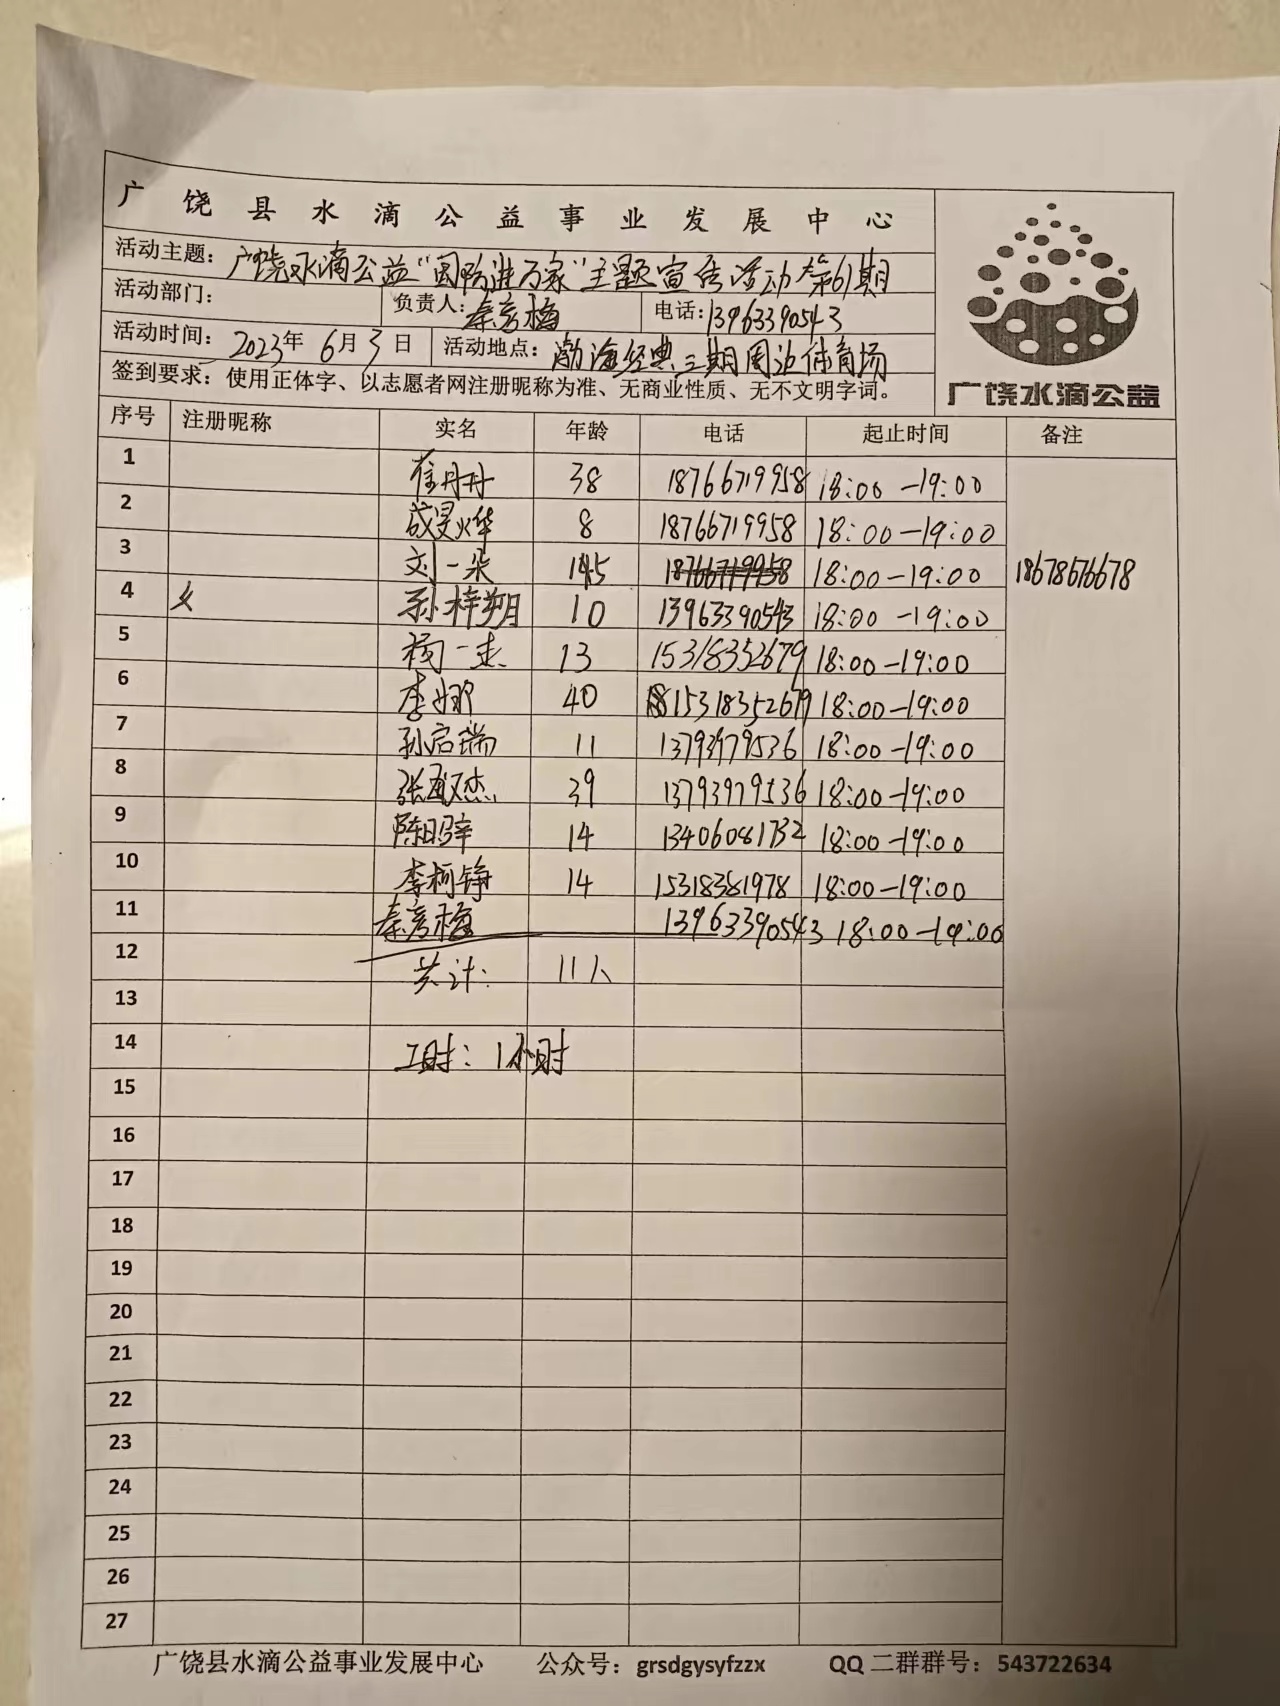 广饶县水滴公益事业发展中心
活动主题：广饶水滴公益“国防进万家”主题宣传活动第61期
活动部门： 负责人：秦彦梅 电话：13963390543
活动时间：2023年6月3日 活动地点：渤海经典三期周边体育场
签到要求：使用正体字、以志愿者网注册昵称为准、无商业性质、无不文明字词。
广饶水滴公益
序号 注册昵称 实名 年龄 电话 起止时间 备注
1 崔丹丹 38 18766719958 18:00-19:00
2 成旻烨 8 18766719958 18:00-19:00
3 刘一朵 18766719958 18:00-19:00 18678676678
4 孙梓朔 10 13963390543 18:00-19:00
5 杨一 13 15318352679 18:00-19:00
6 李娜 40 15318352679 18:00-19:00
7 孙启瑞 11 13793979536 18:00-19:00
8 张 杰 39 13793979536 18:00-19:00
9 陈 14 13406081732 18:00-19:00
10 李柯铮 14 15318381978 18:00-19:00
11 秦彦梅 13963390543 18:00-19:00
12 共计： 11人
13
14 工时：1小时
15
16
17
18
19
20
21
22
23
24
25
26
27
广饶县水滴公益事业发展中心 公众号：grsdgysyfzzx QQ二群群号：543722634